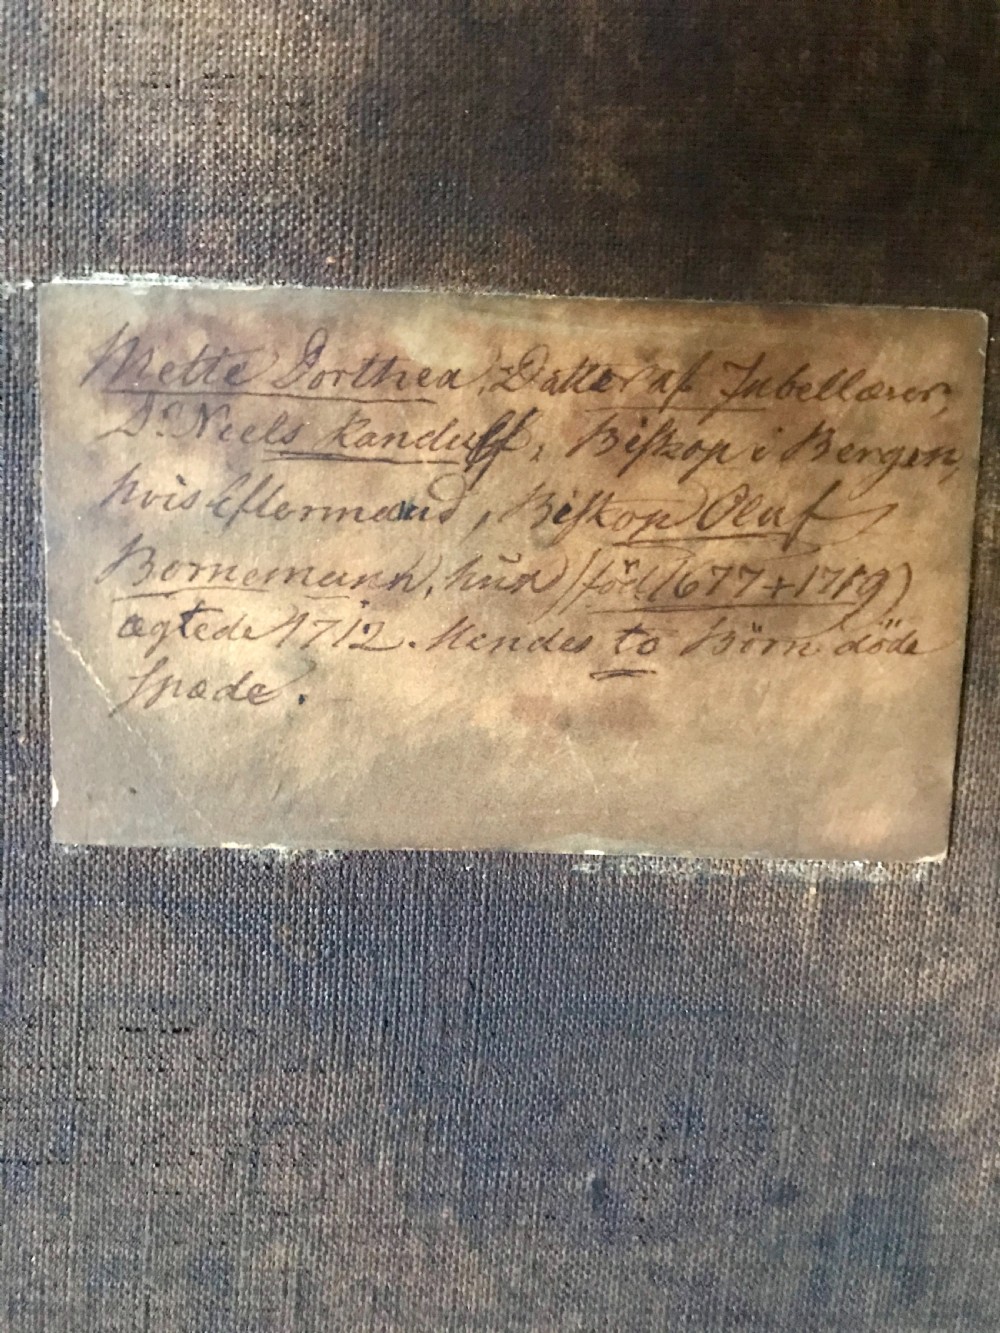 Mette Dorthea, Datter af Jubellærer,
Dr. Niels Randulff, Biskop i Bergen,
hvis Eftermand, Biskop Oluf
Bornemann, hun (föd 1677 + 1719)
ægtede 1712. Hendes to Börn döde
spæde.